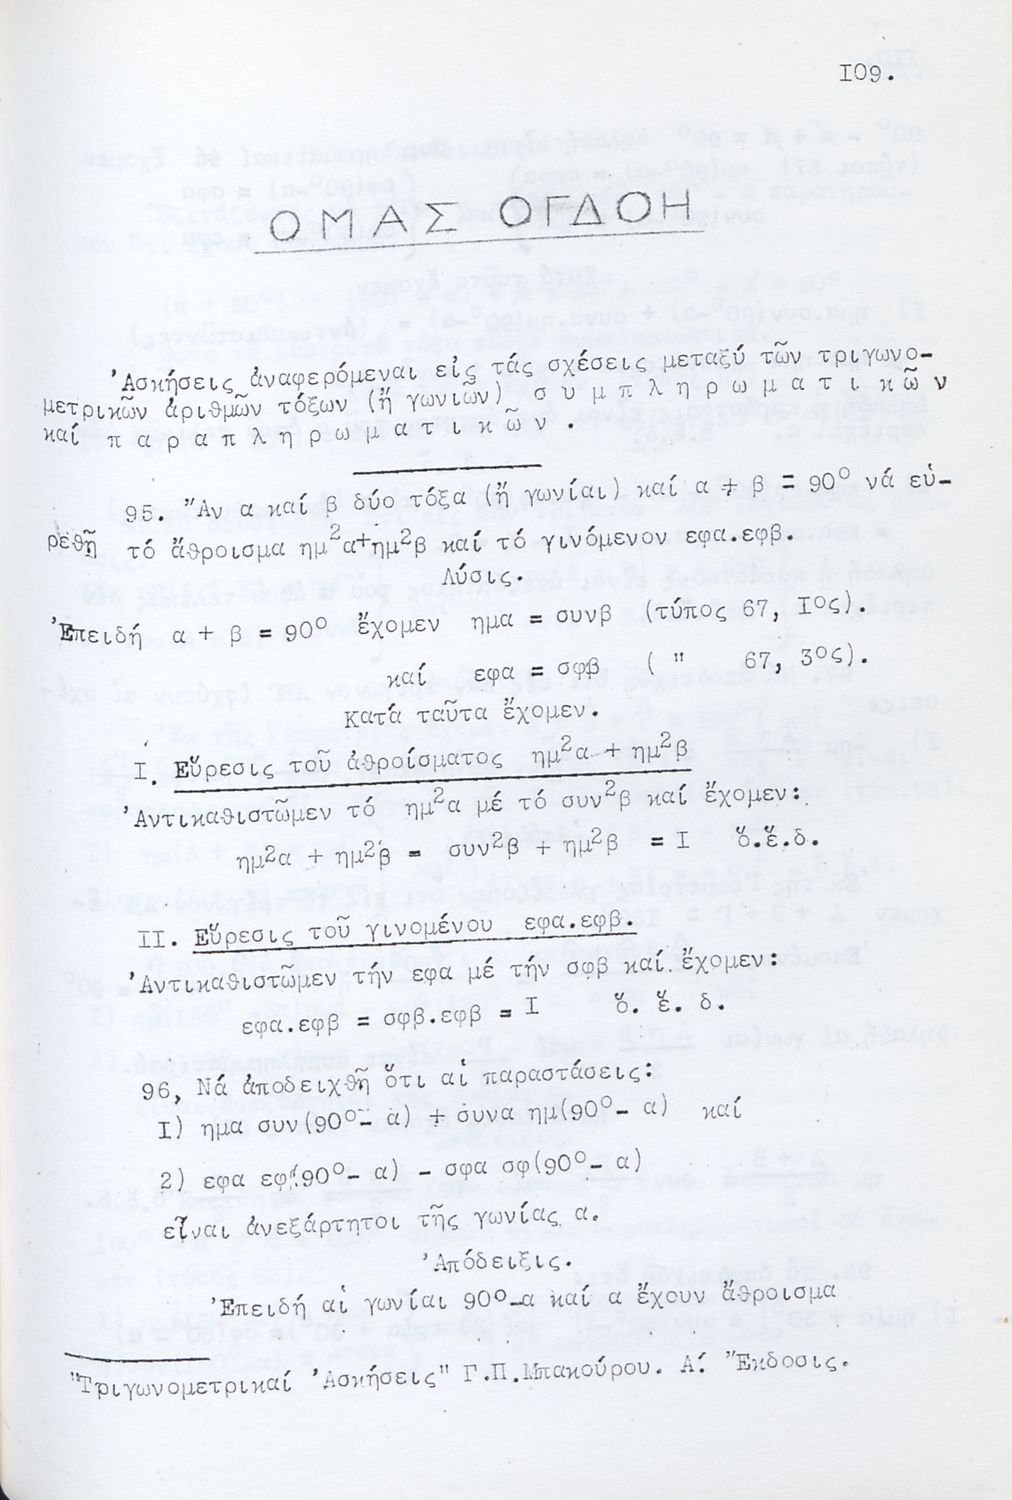 I09.
ΟΜΑΣ ΟΓΔΟΗ
Ἀσκήσεις ἀναφερόμεναι εἰς τάς σχέσεις μεταξύ τῶν τριγωνο-
μετρικῶν ἀριθμῶν τόξων (ἤ γωνιῶν) σ υ μ π λ η ρ ω μ α τ ι κ ῶ ν
καί π α ρ α π λ η ρ ω μ α τ ι κ ῶ ν .
95. Ἄν α καί β δύο τόξα (ἤ γωνίαι) καί α + β = 90⁰ νά εὑ-
ρεθῇ τό ἄθροισμα ημ²α+ημ²β καί τό γινόμενον εφα.εφβ.
Λύσις.
Ἐπειδή α + β = 90⁰ ἔχομεν ημα = συνβ (τύπος 67, Iος).
καί εφα = σφβ ( " 67, 3ος).
Κατά ταῦτα ἔχομεν.
I. Εὕρεσις τοῦ ἀθροίσματος ημ²α + ημ²β
Ἀντικαθιστῶμεν τό ημ²α μέ τό συν²β καί ἔχομεν:
ημ²α + ημ²β = συν²β + ημ²β = I ὅ.ἔ.δ.
II. Εὕρεσις τοῦ γινομένου εφα.εφβ.
Ἀντικαθιστῶμεν τήν εφα μέ τήν σφβ καί ἔχομεν:
εφα.εφβ = σφβ.εφβ = I ὅ. ἔ. δ.
96, Νά ἀποδειχθῇ ὅτι αἱ παραστάσεις:
I) ημα συν(90⁰- α) + συνα ημ(90⁰- α) καί
2) εφα εφ(90⁰- α) - σφα σφ(90⁰- α)
εἶναι ἀνεξάρτητοι τῆς γωνίας α.
Ἀπόδειξις.
Ἐπειδή αἱ γωνίαι 90⁰-α καί α ἔχουν ἄθροισμα
"Τριγωνομετρικαί Ἀσκήσεις" Γ.Π.Μπακούρου. Α΄. Ἔκδοσις.